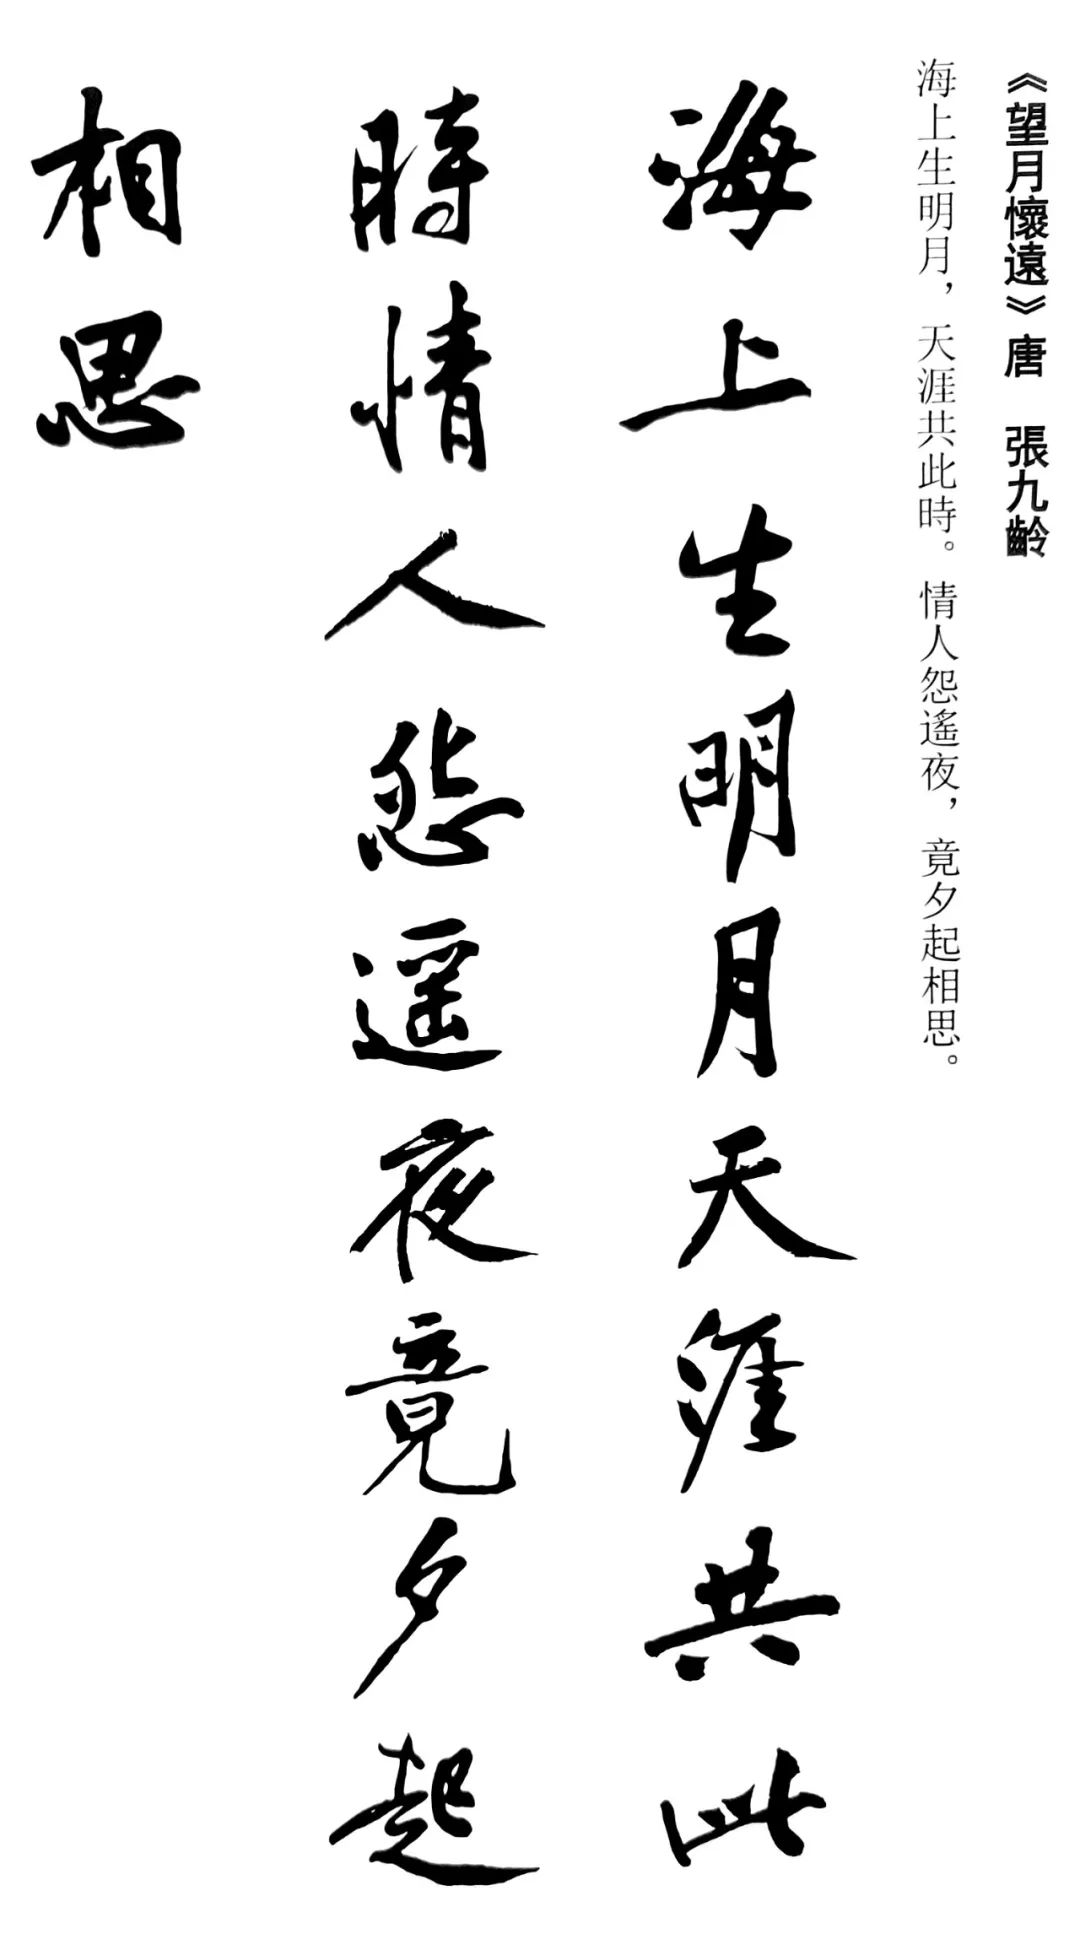 《望月懷遠》唐　張九齡
海上生明月，天涯共此時。情人怨遙夜，竟夕起相思。
海上生明月天涯共此
時情人怨遙夜竟夕起
相思